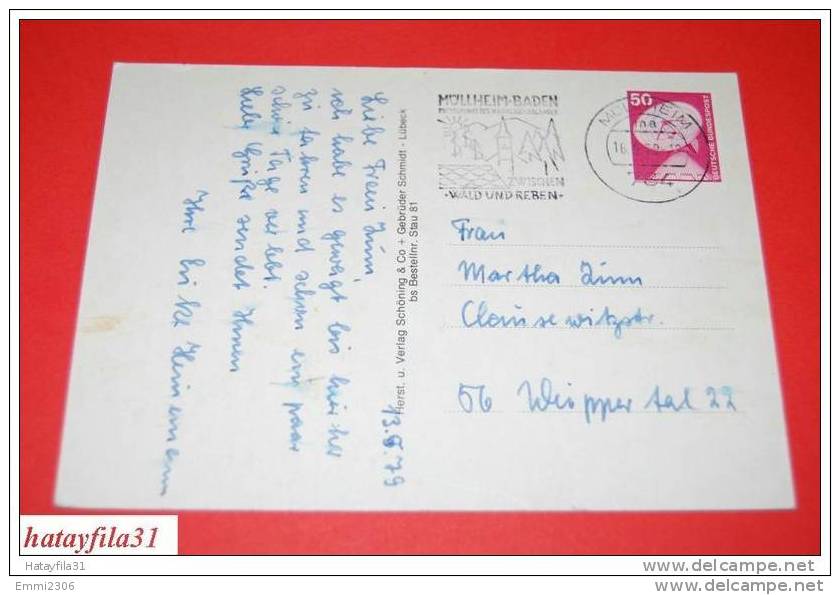 13.5.79
Liebe Frau Zinn,
ich habe es gewagt bis hier her
zu fahren und schon ein paar
schöne Tage verlebt.
Liebe Grüße sendet Ihnen
Ihre
Herst. u. Verlag Schöning & Co + Gebrüder Schmidt - Lübeck
bs Bestellnr. Stau 81
MÜLLHEIM-BADEN
ZWISCHEN
·WALD UND REBEN·
MÜLLHEIM
50
DEUTSCHE BUNDESPOST
Frau
Martha Zinn
Clausewitzstr.
56 Wuppertal 22
hatayfila31
Hatayfila31
Emmi2306
www.delcampe.net
www.delcampe.net